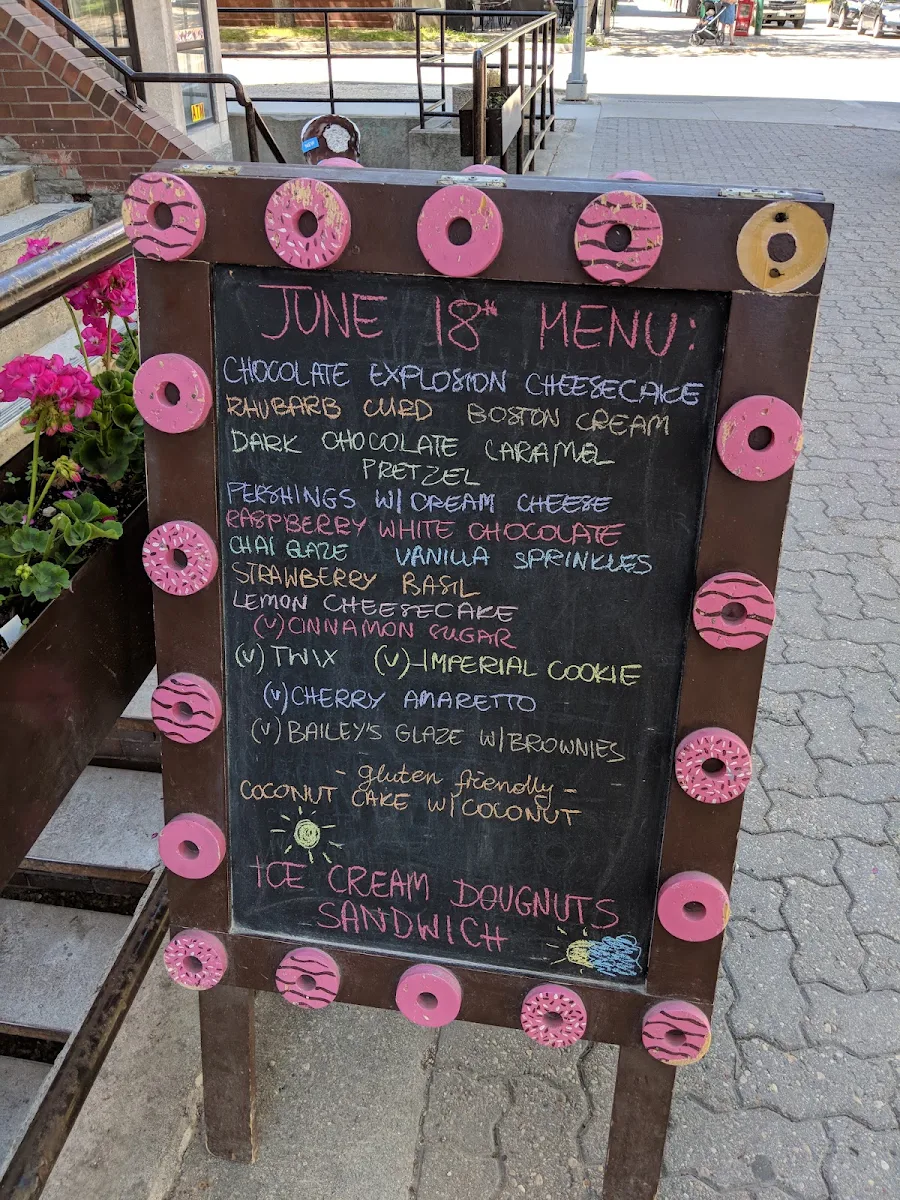 ATM
JUNE 18th MENU:
CHOCOLATE EXPLOSION CHEESECAKE
RHUBARB CURD BOSTON CREAM
DARK CHOCOLATE CARAMEL
PRETZEL
PERSHINGS W/ CREAM CHEESE
RASPBERRY WHITE CHOCOLATE
CHAI GLAZE VANILLA SPRINKLES
STRAWBERRY BASIL
LEMON CHEESECAKE
(V) CINNAMON SUGAR
(V) TWIX (V) IMPERIAL COOKIE
(V) CHERRY AMARETTO
(V) BAILEY'S GLAZE W/ BROWNIES
- gluten friendly -
COCONUT CAKE W/ COCONUT
ICE CREAM DOUGNUTS
SANDWICH